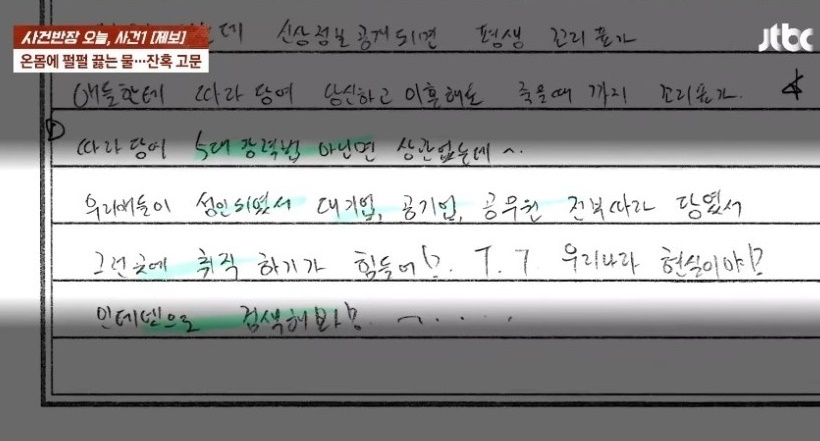 사건반장 오늘, 사건1 [제보]
온몸에 펄펄 끓는 물…잔혹 고문
jtbc
신상정보 공개되면 평생 꼬리표가
애들한테 따라 당여 당신하고 이혼해도 죽을때 까지 꼬리표가
따라 당여 5대 강력법 아닌면 상관없는데~.
우리애들이 성인되였서 대기업, 공기업, 공무원 전부따라 당였서
그런곳에 취직 하기가 힘들어!? T.T 우리나라 현실이야!?
인테넷으로 검색해봐! ~. . . . .